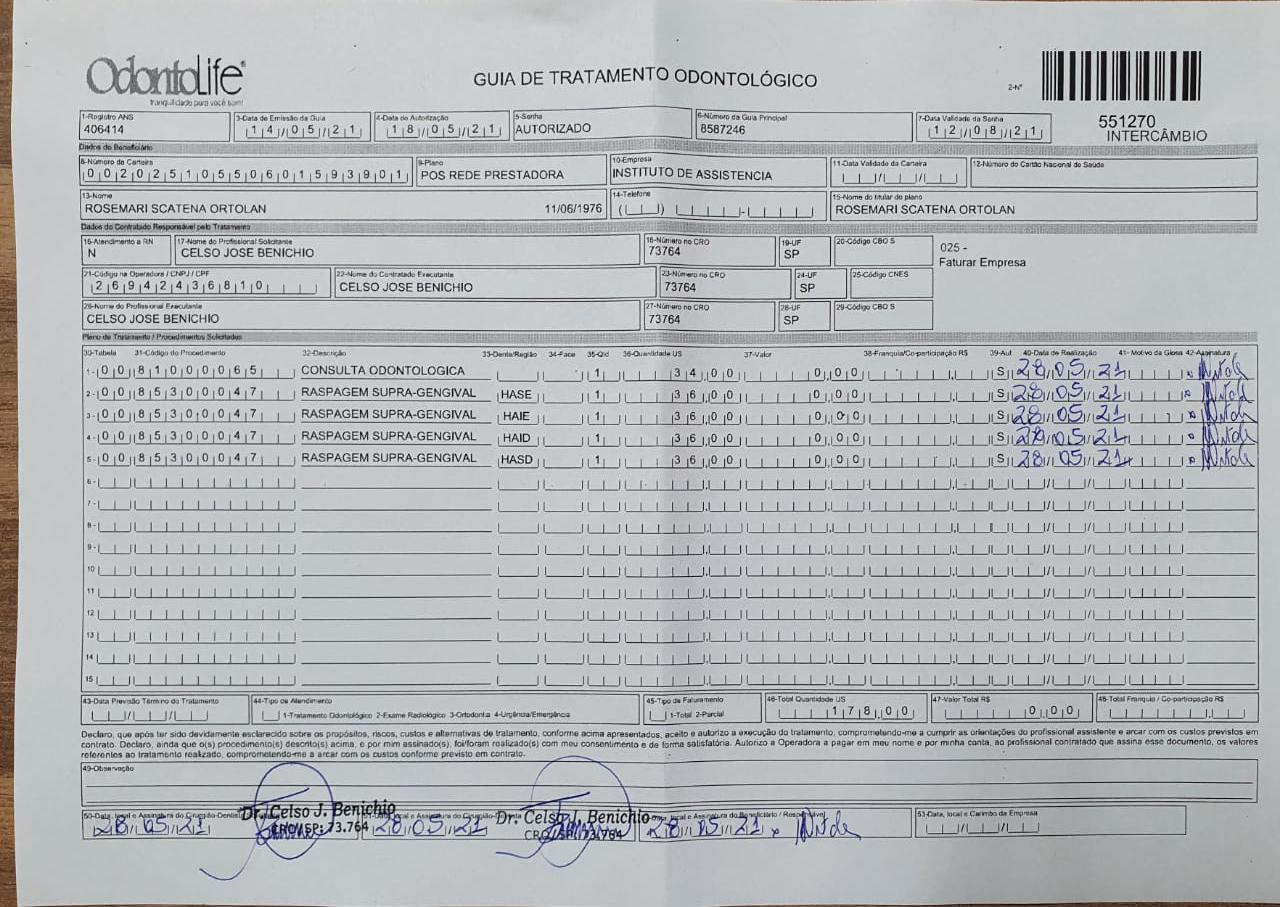 OdontoLife
tranquilidade para você sorrir
GUIA DE TRATAMENTO ODONTOLÓGICO
2-Nº
551270
INTERCÂMBIO
1-Registro ANS 3-Data de Emissão da Guia 4-Data de Autorização 5-Senha 6-Número da Guia Principal 7-Data Validade da Senha
406414 14/05/21 18/05/21 AUTORIZADO 8587246 12/08/21
Dados do Beneficiário
8-Número da Carteira 9-Plano 10-Empresa 11-Data Validade da Carteira 12-Número do Cartão Nacional de Saúde
00202510550601593901 POS REDE PRESTADORA INSTITUTO DE ASSISTENCIA
13-Nome 14-Telefone 15-Nome do titular do plano
ROSEMARI SCATENA ORTOLAN 11/06/1976 ROSEMARI SCATENA ORTOLAN
Dados do Contratado Responsável pelo Tratamento
16-Atendimento a RN 17-Nome do Profissional Solicitante 18-Número no CRO 19-UF 20-Código CBO S
N CELSO JOSE BENICHIO 73764 SP
025 -
Faturar Empresa
21-Código na Operadora / CNPJ / CPF 22-Nome do Contratado Executante 23-Número no CRO 24-UF 25-Código CNES
26942436810 CELSO JOSE BENICHIO 73764 SP
26-Nome do Profissional Executante 27-Número no CRO 28-UF 29-Código CBO S
CELSO JOSE BENICHIO 73764 SP
Plano de Tratamento / Procedimentos Solicitados
30-Tabela 31-Código do Procedimento 32-Descrição 33-Dente/Região 34-Face 35-Qtd 36-Quantidade US 37-Valor 38-Franquia/Co-participação R$ 39-Aut 40-Data de Realização 41-Motivo da Glosa 42-Assinatura
1- 00 81000065 CONSULTA ODONTOLOGICA 1 34,00 0,00 S 28/05/21
2- 00 85300047 RASPAGEM SUPRA-GENGIVAL HASE 1 36,00 0,00 S 28/05/21
3- 00 85300047 RASPAGEM SUPRA-GENGIVAL HAIE 1 36,00 0,00 S 28/05/21
4- 00 85300047 RASPAGEM SUPRA-GENGIVAL HAID 1 36,00 0,00 S 28/05/21
5- 00 85300047 RASPAGEM SUPRA-GENGIVAL HASD 1 36,00 0,00 S 28/05/21
6-
7-
8-
9-
10
11
12
13
14
15
43-Data Previsão Término do Tratamento 44-Tipo de Atendimento 45-Tipo de Faturamento 46-Total Quantidade US 47-Valor Total R$ 48-Total Franquia / Co-participação R$
1-Tratamento Odontológico 2-Exame Radiológico 3-Ortodontia 4-Urgência/Emergência 1-Total 2-Parcial 178,00 0,00
Declaro, que após ter sido devidamente esclarecido sobre os propósitos, riscos, custos e alternativas de tratamento, conforme acima apresentados, aceito e autorizo a execução do tratamento, comprometendo-me a cumprir as orientações do profissional assistente e arcar com os custos previstos em
contrato. Declaro, ainda que o(s) procedimento(s) descrito(s) acima, e por mim assinado(s), foi/foram realizado(s) com meu consentimento e de forma satisfatória. Autorizo a Operadora a pagar em meu nome e por minha conta, ao profissional contratado que assina esse documento, os valores
referentes ao tratamento realizado, comprometendo-me a arcar com os custos conforme previsto em contrato.
49-Observação
Dr. Celso J. Benichio Dr. Celso J. Benichio
CRO/SP: 73.764 CRO/SP: 73.764
50-Data, local e Assinatura do Cirurgião-Dentista local e Assinatura do Cirurgião-Dentista local e Assinatura do Beneficiário / Responsável 53-Data, local e Carimbo da Empresa
28/05/21 28/05/21 28/05/21